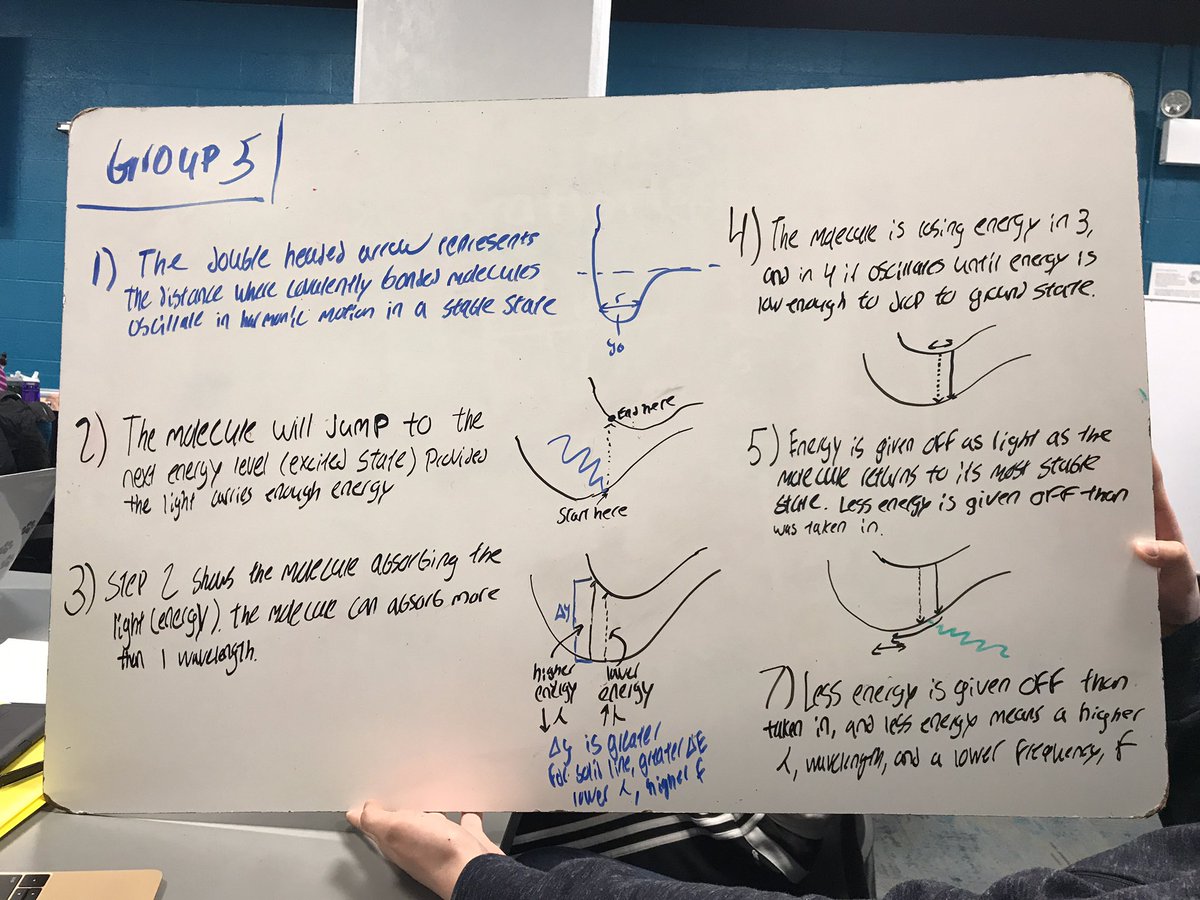 Group 5
1) The double headed arrow represents
the distance where covalently bonded molecules
oscillate in harmonic motion in a stable state
r
y0
2) The molecule will jump to the
next energy level (excited state) provided
the light carries enough energy
End here
Start here
3) Step 2 shows the molecule absorbing the
light (energy). The molecule can absorb more
than 1 wavelength.
Δy
higher
energy
↓λ
lower
energy
↑λ
Δy is greater
for solid line, greater ΔE
lower λ, higher f
4) The molecule is losing energy in 3,
and in 4 it oscillates until energy is
low enough to jump to ground state.
5) Energy is given off as light as the
molecule returns to its most stable
state. Less energy is given off than
was taken in.
7) Less energy is given off than
taken in, and less energy means a higher
λ, wavelength, and a lower frequency, f